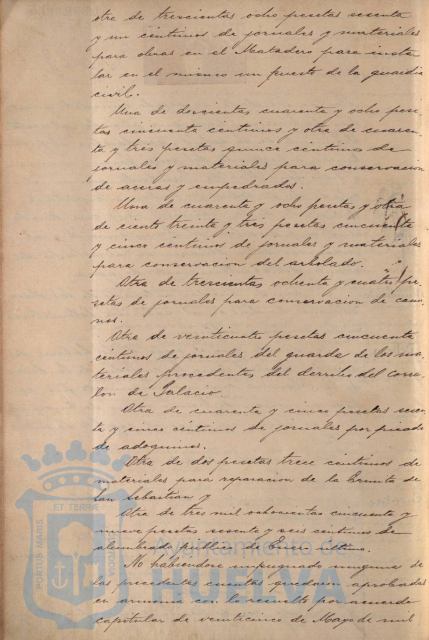 otra de trescientas ocho pesetas sesenta
y un céntimos de jornales y materiales
para obras en el Matadero para insta
lar en el mismo un puesto de la guardia
civil.
Una de doscientas cuarenta y ocho pese
tas cincuenta centimos y otra de cuaren
ta y tres pesetas quince centimos de
jornales y materiales para conservacion
de aceras y empedrados.
Una de cuarenta y ocho pesetas y otra
de ciento treinta y tres pesetas cincuenta
y cinco centimos de jornales y materiales
para conservacion del arbolado.
Otra de trescientas ochenta y cuatro pe
setas de jornales para conservacion de cami
nos.
Otra de veinticuatro pesetas cincuenta
centimos de jornales del guarda de los ma
teriales procedentes del derribo del Corra
lon de Palacio.
Otra de cuarenta y cinco pesetas sesen
ta y cinco centimos de jornales por picado
de adoquines.
Otra de dos pesetas trece centimos de
materiales para reparacion de la Ermita de
San Sebastian y
Otra de tres mil ochocientas cincuenta y
nueve pesetas sesenta y seis centimos de
alumbrado público de Enero último.
No habiendose impugnado ninguna de
las precedentes cuentas quedaron aprobadas
en armonia con lo resuelto por acuerdo
capitular de veinticinco de Mayo de mil
PORTUS MARIS
ET TERRE
Ayuntamiento de
HUELVA